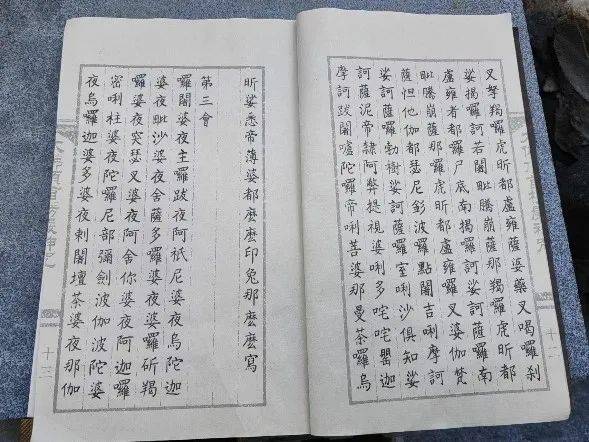 叉拏羯囉虎昕都盧雍薩婆藥叉喝囉剎
娑揭囉訶若闍毗騰崩薩那羯囉虎昕都
盧雍者都囉尸底南揭囉訶娑訶薩囉南
毗騰崩薩那囉虎昕都盧雍囉叉婆伽梵
薩怛他伽都瑟尼釤波囉點闍吉唎摩訶
娑訶薩囉勃樹娑訶薩囉室唎沙俱知娑
訶薩泥帝隸阿弊提視婆唎多吒吒甖迦
摩訶跋闍嚧陀囉帝唎菩婆那曼茶囉烏
十二
昕娑悉帝薄婆都麼麼印兔那麼麼寫
第三會
囉闍婆夜主囉跋夜阿祇尼婆夜烏陀迦
婆夜毗沙婆夜舍薩多囉婆夜婆囉斫羯
囉婆夜突瑟叉婆夜阿舍你婆夜阿迦囉
密唎柱婆夜陀囉尼部彌劍波伽波陀婆
夜烏囉迦婆多婆夜剌闍壇茶婆夜那伽
十三